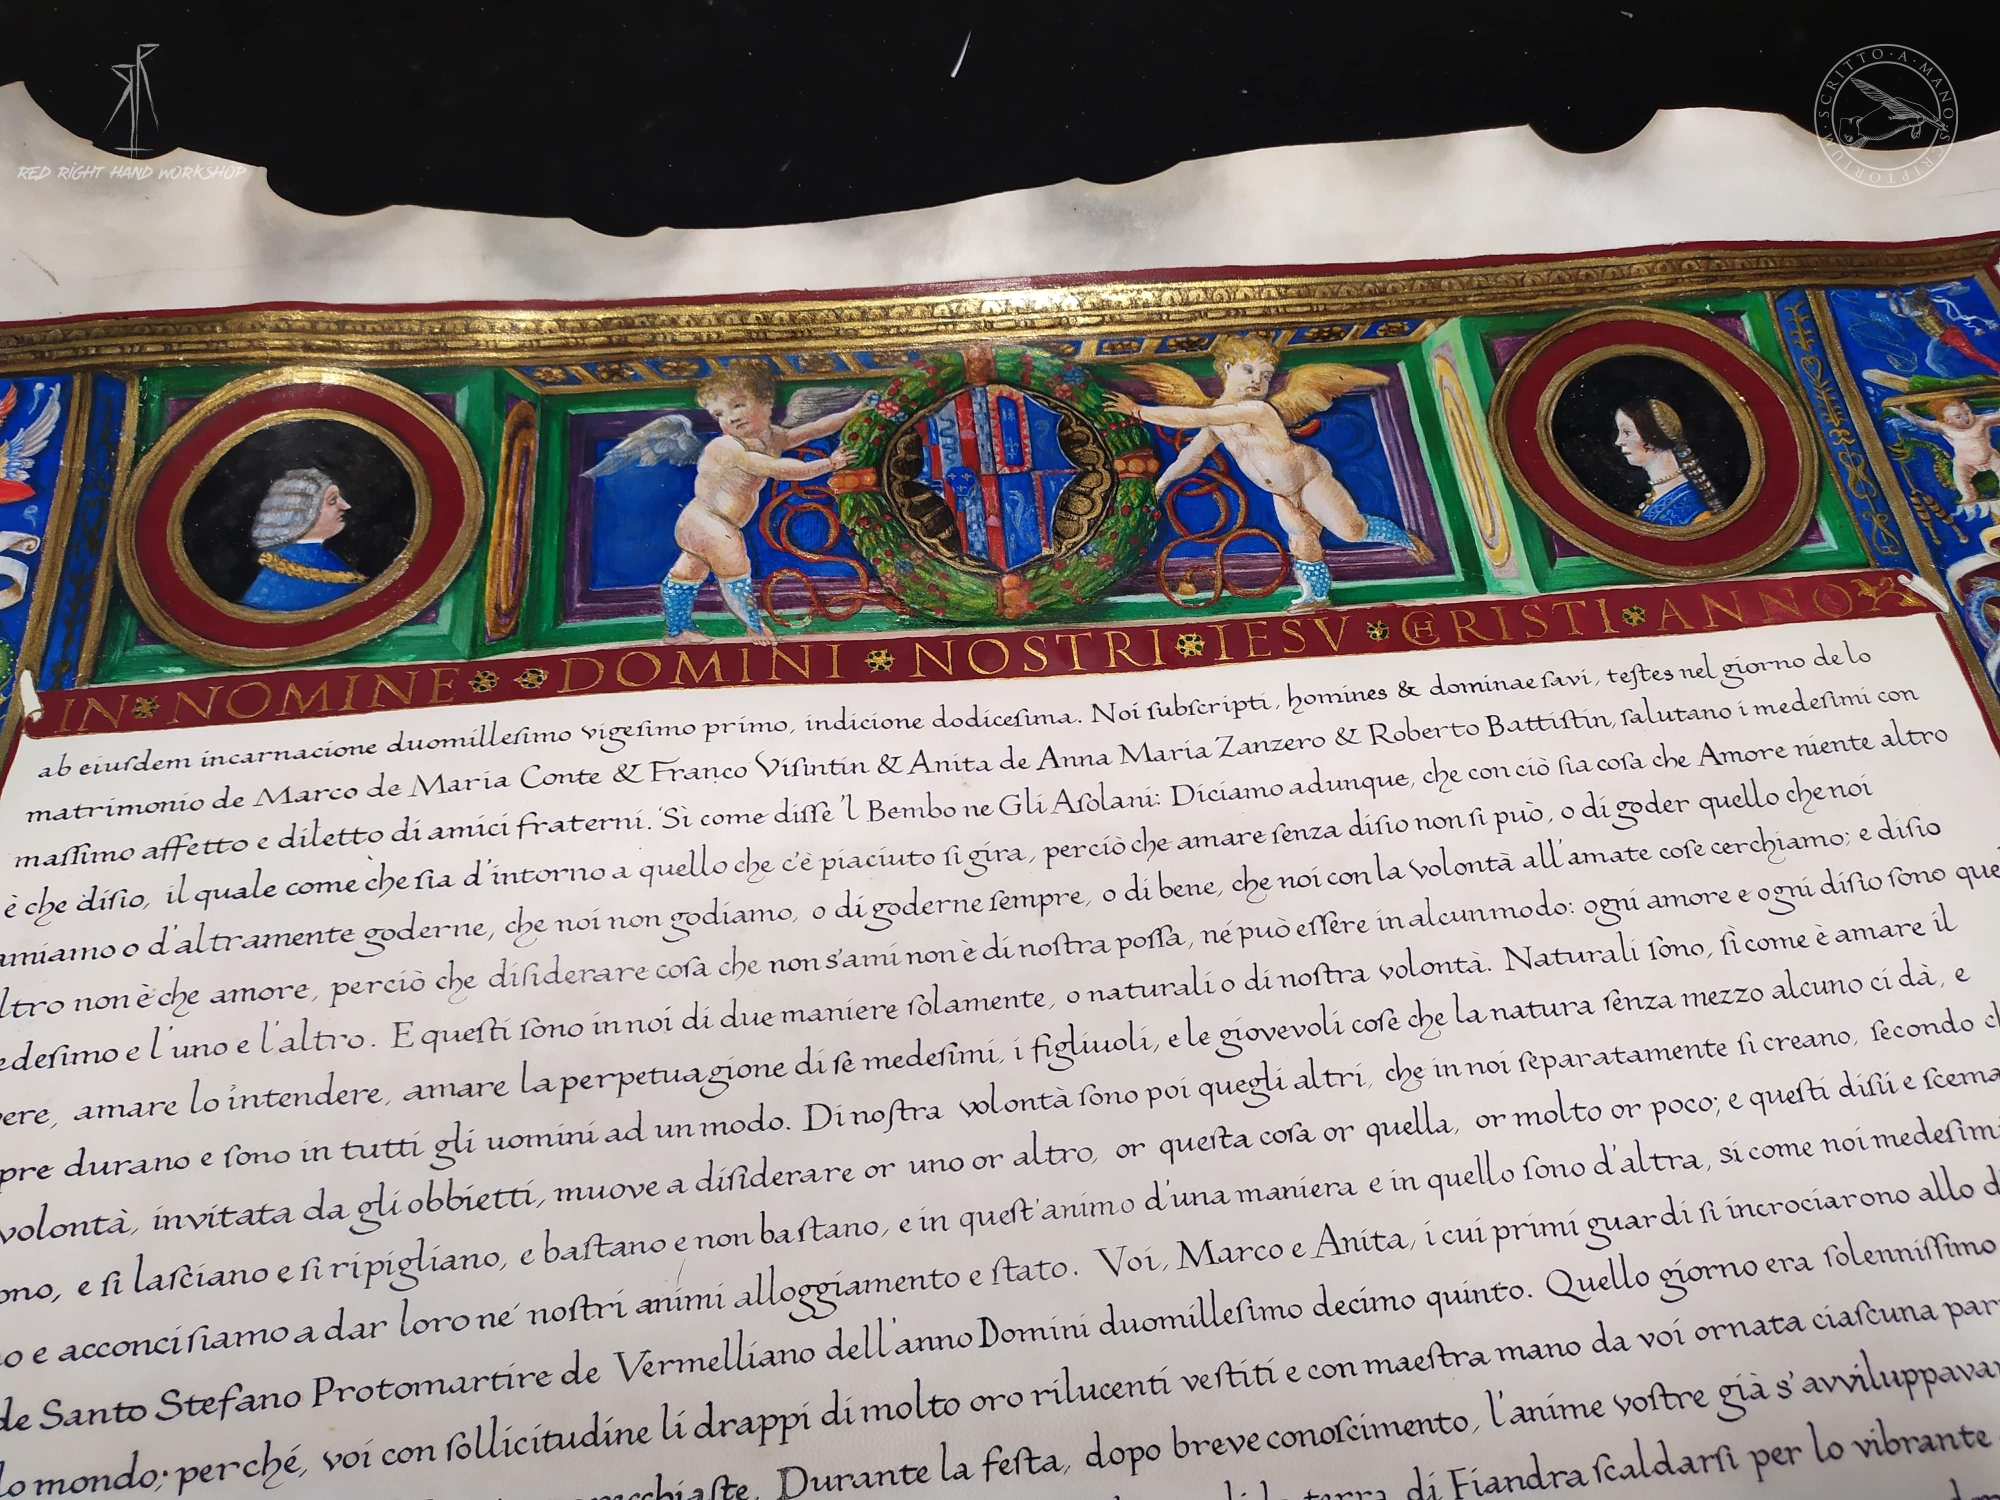 RED RIGHT HAND WORKSHOP
SCRITTO · A · MANO · SCRIPTORIUM ·
IN NOMINE DOMINI NOSTRI IESV CHRISTI ANNO
ab eiuſdem incarnacione duomilleſimo vigeſimo primo, indicione dodiceſima. Noi ſubſcripti, homines & dominae ſavi, teſtes nel giorno de lo
matrimonio de Marco de Maria Conte & Franco Viſintin & Anita de Anna Maria Zanzero & Roberto Battiſtin, ſalutano i medeſimi con
maſſimo affetto e diletto di amici fraterni. Sì come diſſe 'l Bembo ne Gli Aſolani: Diciamo adunque, che con ciò ſia coſa che Amore niente altro
è che diſio, il quale come che ſia d'intorno a quello che c'è piaciuto ſi gira, perciò che amare ſenza diſio non ſi può, o di goder quello che noi
amiamo o d'altramente goderne, che noi non godiamo, o di goderne ſempre, o di bene, che noi con la volontà all'amate coſe cerchiamo; e diſio
ltro non è che amore, perciò che diſiderare coſa che non s'ami non è di noſtra poſſa, né può eſſere in alcun modo: ogni amore e ogni diſio ſono que
edeſimo e l'uno e l'altro. E queſti ſono in noi di due maniere ſolamente, o naturali o di noſtra volontà. Naturali ſono, ſì come è amare il
vere, amare lo intendere, amare la perpetuagione di ſe medeſimi, i figliuoli, e le giovevoli coſe che la natura ſenza mezzo alcuno ci dà, e
pre durano e ſono in tutti gli uomini ad un modo. Di noſtra volontà ſono poi quegli altri, che in noi ſeparatamente ſi creano, ſecondo ch
volontà, invitata da gli obbietti, muove a diſiderare or uno or altro, or queſta coſa or quella, or molto or poco; e queſti diſii e ſcema
ono, e ſi laſciano e ſi ripigliano, e baſtano e non baſtano, e in queſt'animo d'una maniera e in quello ſono d'altra, sì come noi medeſimi
o e acconci ſiamo a dar loro ne' noſtri animi alloggiamento e ſtato. Voi, Marco e Anita, i cui primi guardi ſi incrociarono allo d
de Santo Stefano Protomartire de Vermelliano dell'anno Domini duomilleſimo decimo quinto. Quello giorno era ſolenniſſimo
lo mondo; perché, voi con ſollicitudine li drappi di molto oro rilucenti veſtiti e con maeſtra mano da voi ornata ciaſcuna par
Durante la feſta, dopo breve conoſcimento, l'anime voſtre già s'avviluppava
terra di Fiandra ſcaldarſi per lo vibrante